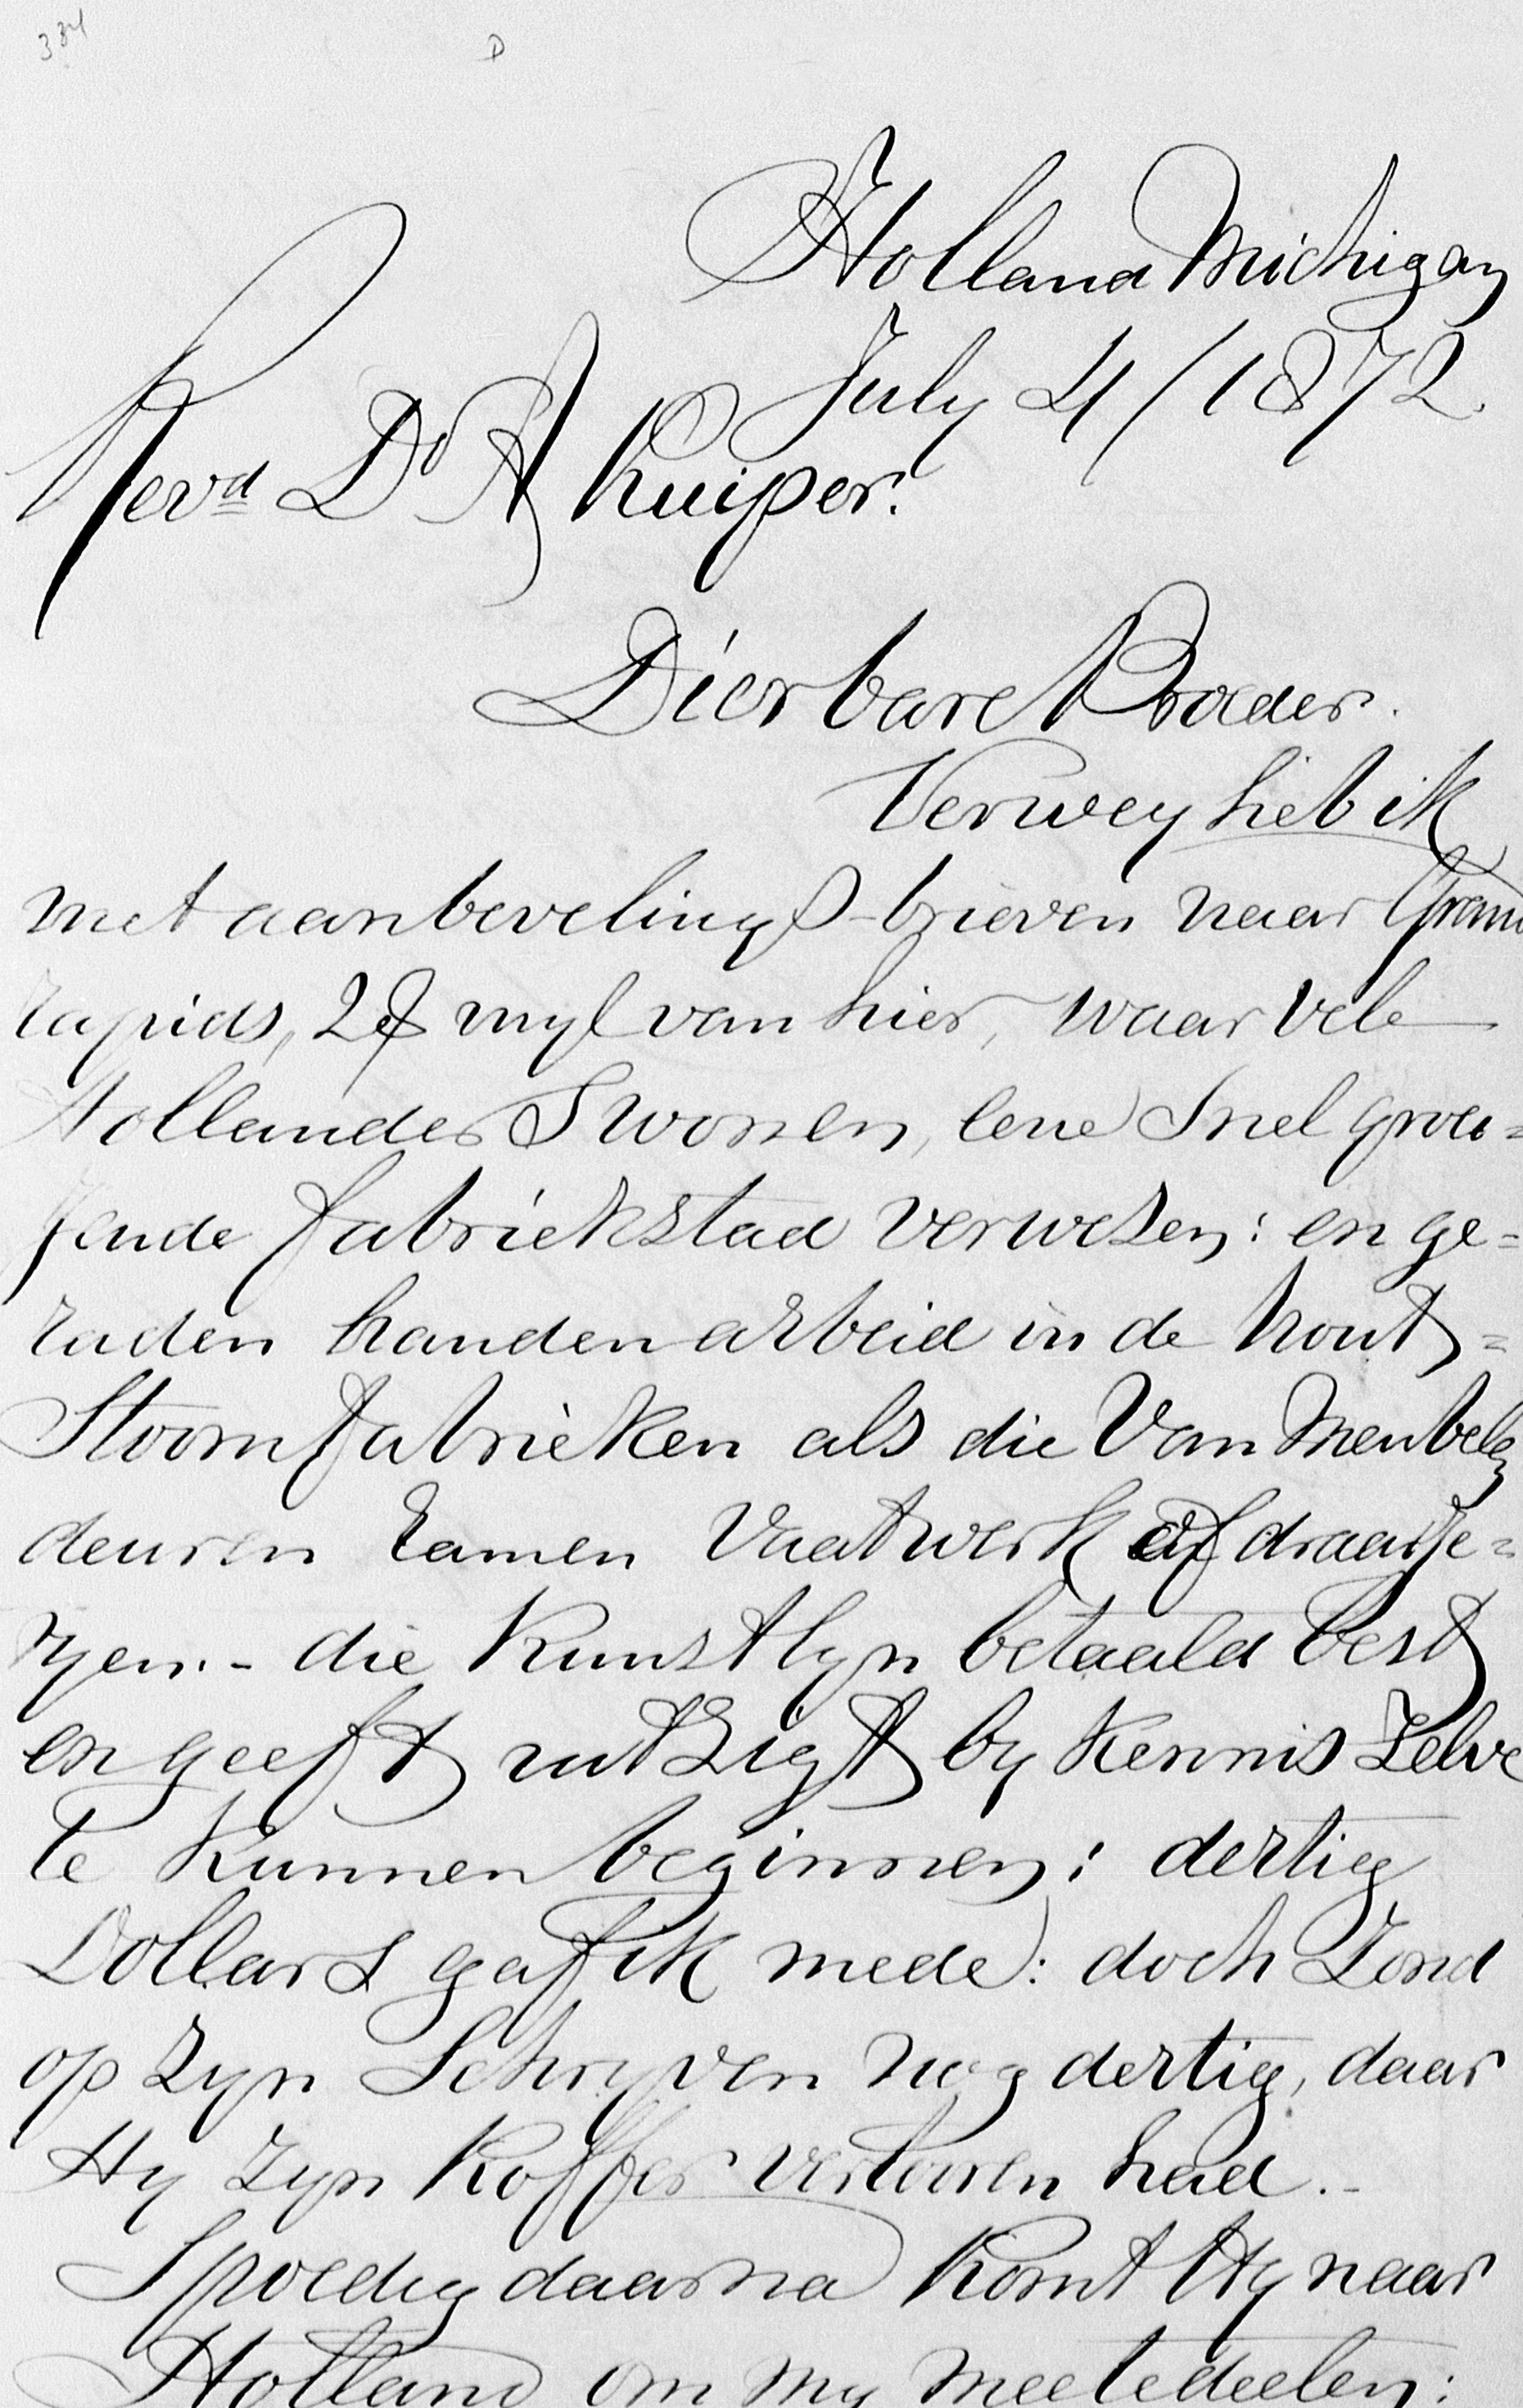 384 D
Holland Michigan
July 4/1872.
Revd Dr A Kuiper.
Dierbare Broeder.
Verwey heb ik
met aanbevelings-brieven naar Grand
rapids, 28 myl van hier, waar vele
Hollanders wonen, eene Snel groei=
jende fabriekstad verwezen: en ge=
raden handenarbeid in de hout=
Stoomfabrieken als die van Meubelen
deuren ramen Vaatwerk of draaije=
ryen. - die Kunstlyn betaald best
en geeft uitzigt by Kennis Zelve
te Kunnen beginnen: dertig
Dollars gaf ik mede: doch Zond
op zyn Schryven nog dertig, daar
Hy Zyn Koffer verloren had. -
Spoedig daarna Komt Hy naar
Holland om my meetedeelen: